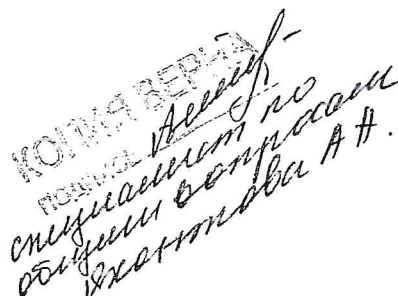 КОПИЯ ВЕРНА
ПОДПИСЬ
специалист по
общим вопросам
Яхонтова А Н.